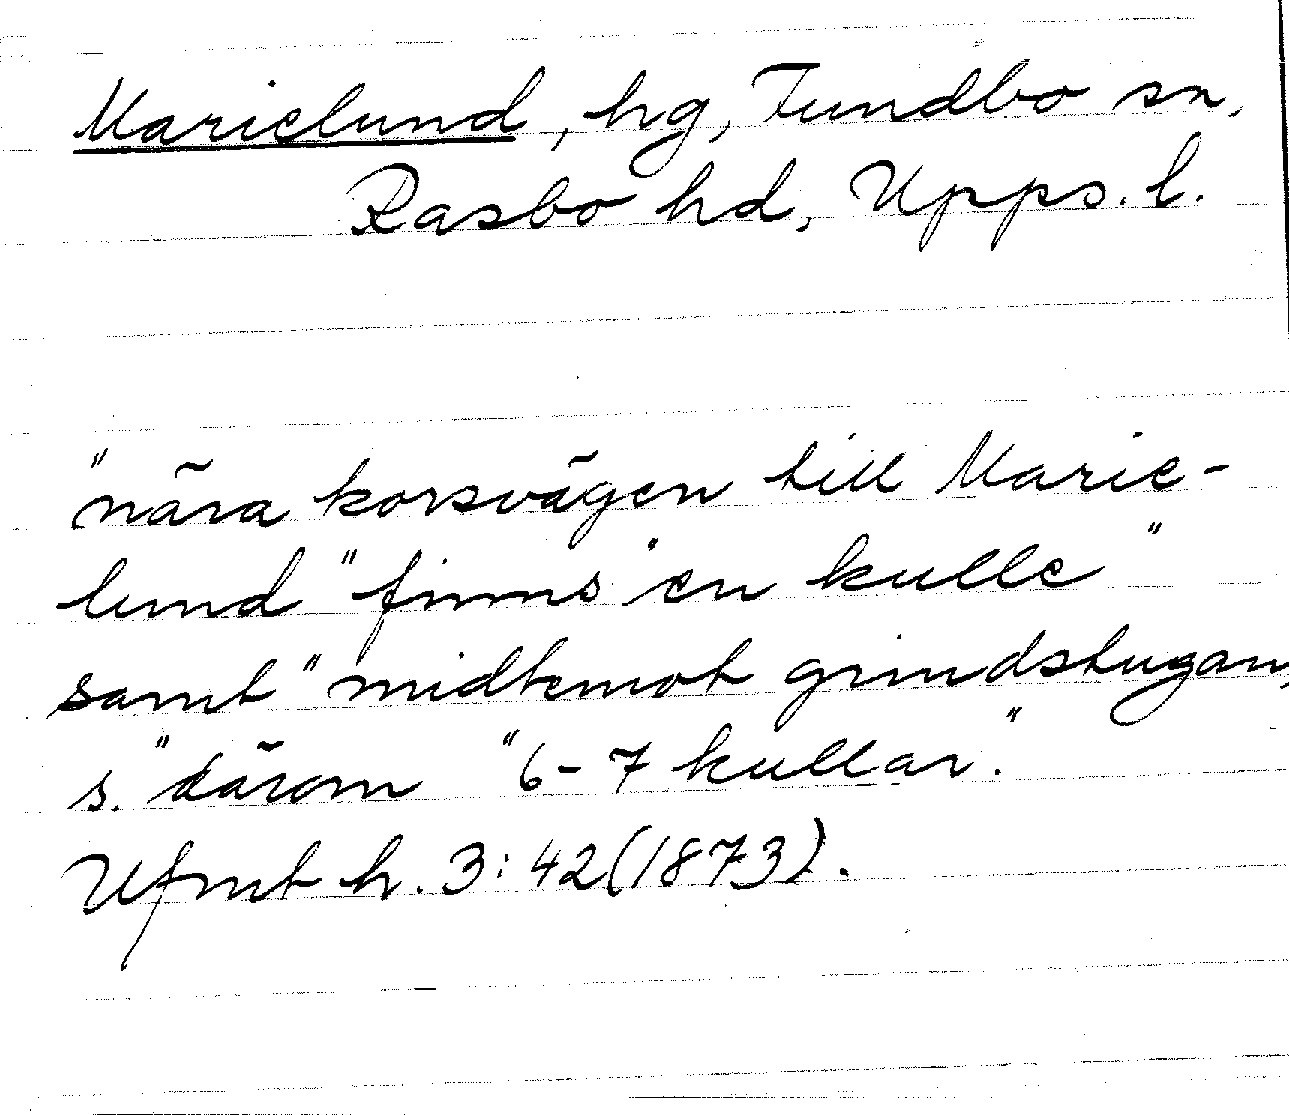 Marielund, hg, Funbo sn,
Rasbo hd, Upps. l.
"nära korsvägen till Marie-
lund" finns "en kulle"
samt "midtemot grindstugan,
s." därom "6-7 kullar."
Ufmt h. 3:42(1873).